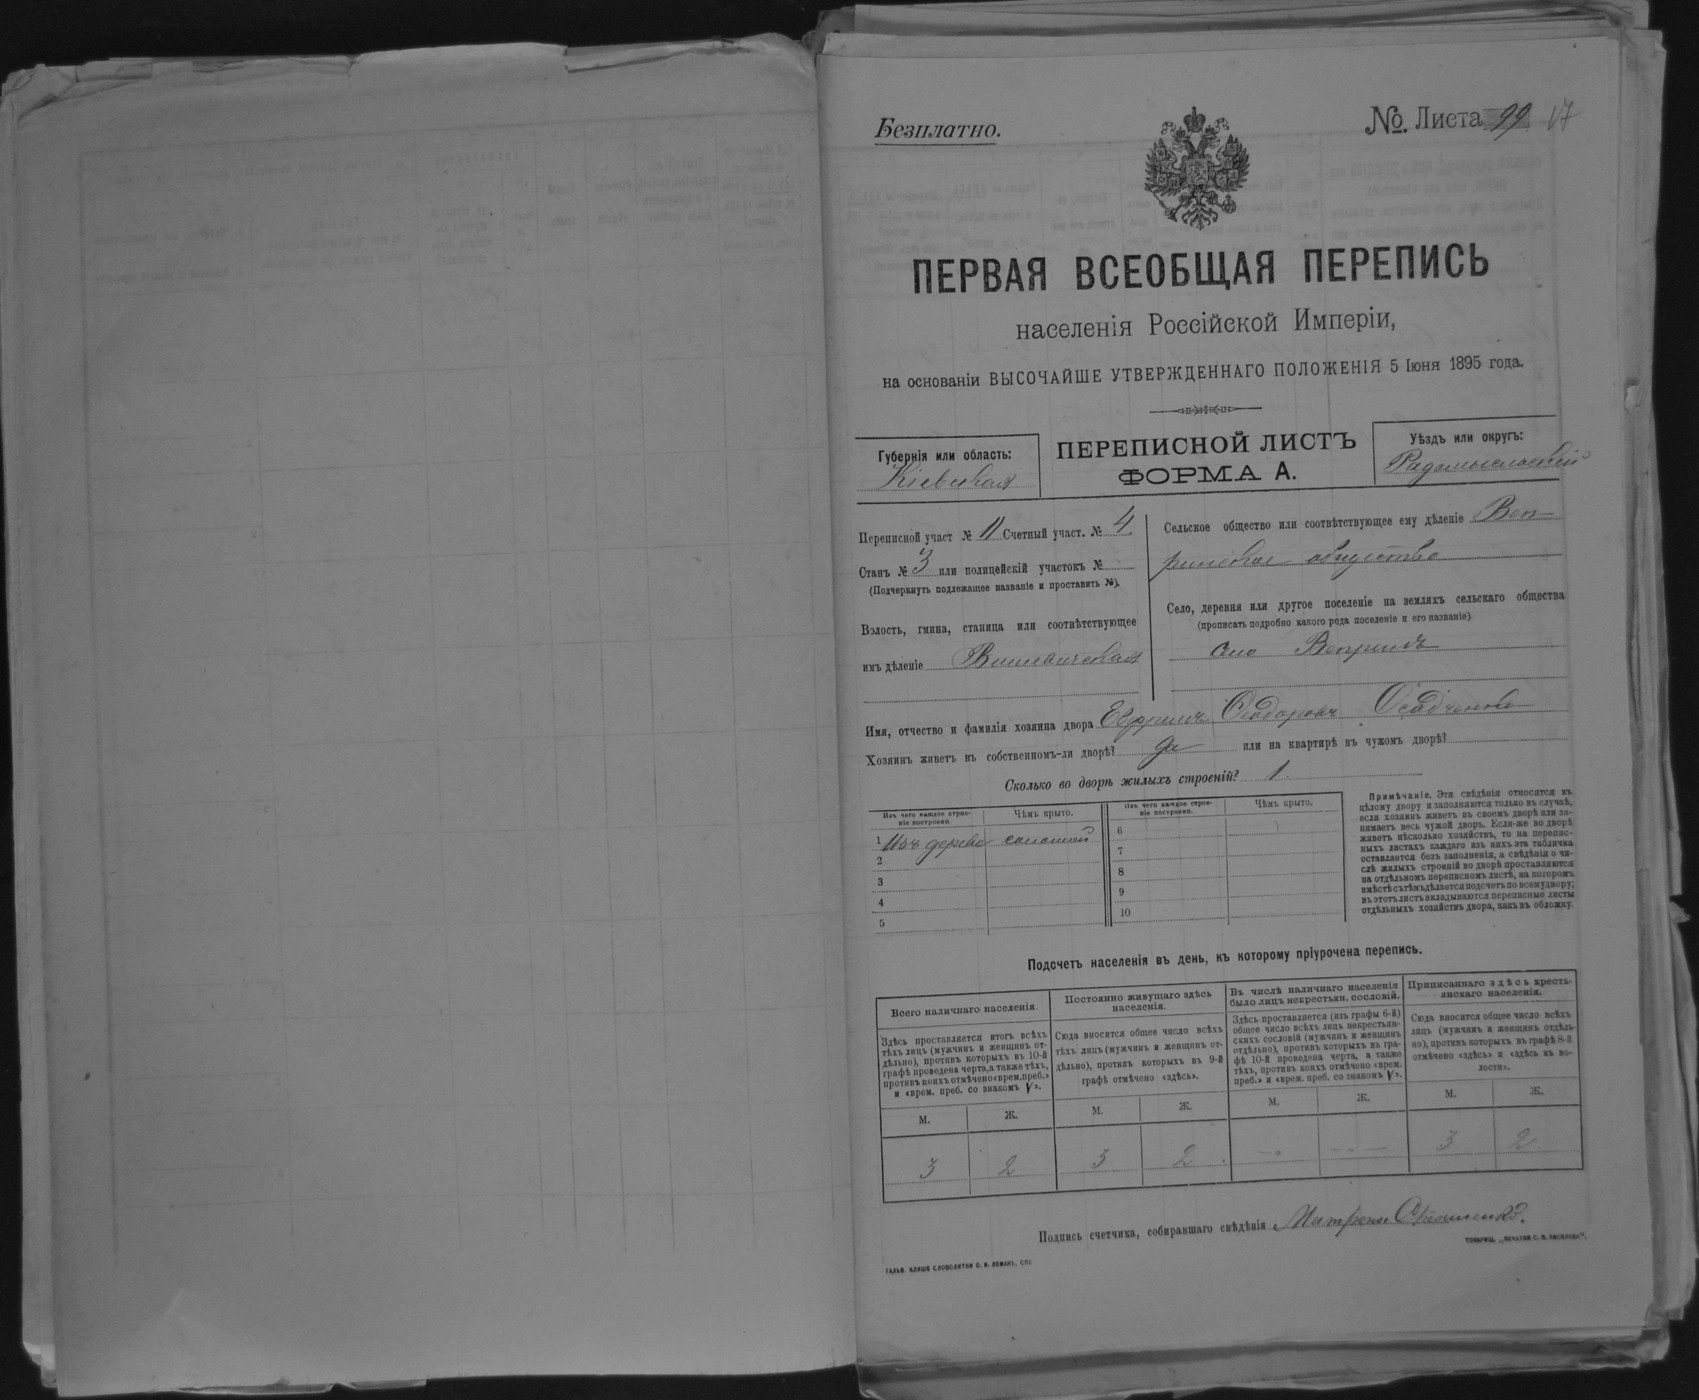 Безплатно.
№. Листа 99 17
ПЕРВАЯ ВСЕОБЩАЯ ПЕРЕПИСЬ
населенія Россійской Имперіи,
на основаніи ВЫСОЧАЙШЕ УТВЕРЖДЕННАГО ПОЛОЖЕНІЯ 5 Іюня 1895 года.
Губернія или область:
Кіевская
ПЕРЕПИСНОЙ ЛИСТЪ
ФОРМА А.
Уѣздъ или округъ:
Радомысльскій
Переписной участ № 11 Счетный участ. № 4
Станъ № 3 или полицейскій участокъ №
(Подчеркнуть подлежащее названіе и проставить №).
Волость, гмина, станица или соотвѣтствующее
имъ дѣленіе
Сельское общество или соотвѣтствующее ему дѣленіе Веп-
ринское общество
Село, деревня или другое поселеніе на земляхъ сельскаго общества
(прописать подробно какого рода поселеніе и его названіе).
село Вепринъ
Имя, отчество и фамилія хозяина двора Ефремъ Феодоровъ Осадченко
Хозяинъ живетъ въ собственномъ-ли дворѣ? да или на квартирѣ въ чужомъ дворѣ?
Сколько во дворѣ жилыхъ строеній? 1.
Изъ чего каждое строе-
ніе построено.
Чѣмъ крыто.
1 Изъ дерева соломой
2
3
4
5
Изъ чего каждое строе-
ніе построено.
Чѣмъ крыто.
6
7
8
9
10
Примѣчаніе. Эти свѣдѣнія относятся къ
цѣлому двору и заполняются только въ случаѣ,
если хозяинъ живетъ въ своемъ дворѣ или за-
нимаетъ весь чужой дворъ. Если-же во дворѣ
живетъ нѣсколько хозяйствъ, то на перепис-
ныхъ листахъ каждаго изъ нихъ эта табличка
оставляется безъ заполненія, а свѣдѣнія о чи-
слѣ жилыхъ строеній во дворѣ проставляются
на отдѣльномъ переписномъ листѣ, на которомъ
вмѣстѣ съ тѣмъ дѣлается подсчетъ по всему двору;
въ этотъ листъ вкладываются переписные листы
отдѣльныхъ хозяйствъ двора, какъ въ обложку.
Подсчетъ населенія въ день, къ которому пріурочена перепись.
Всего наличнаго населенія.
Здѣсь проставляется итогъ всѣхъ
тѣхъ лицъ (мужчинъ и женщинъ от-
дѣльно), противъ которыхъ въ 10-й
графѣ проведена черта, а также тѣхъ,
противъ коихъ отмѣчено «врем. преб.»
и «врем. преб. со знакомъ V».
М. Ж.
3 2
Постоянно живущаго здѣсь
населенія.
Сюда вносится общее число всѣхъ
тѣхъ лицъ (мужчинъ и женщинъ от-
дѣльно), противъ которыхъ въ 9-й
графѣ отмѣчено «здѣсь».
М. Ж.
3 2
Въ числѣ наличнаго населенія
было лицъ некрестьян. сословій.
Здѣсь проставляется (изъ графы 6-й)
общее число всѣхъ лицъ некрестьян-
скихъ сословій (мужчинъ и женщинъ
отдѣльно), противъ которыхъ въ гра-
фѣ 10-й проведена черта, а также
тѣхъ, противъ коихъ отмѣчено «врем.
преб.» и «врем. преб. со знакомъ V».
М. Ж.
Приписаннаго здѣсь кресть-
янскаго населенія.
Сюда вносится общее число всѣхъ
лицъ (мужчинъ и женщинъ отдѣль-
но), противъ которыхъ въ графѣ 8-й
отмѣчено «здѣсь» и «здѣсь къ во-
лости».
М. Ж.
3 2
Подпись счетчика, собиравшаго свѣдѣнія
ГАЛЬВ. КЛИШЕ СЛОВОЛИТНИ О. И. ЛЕМАНЪ, СПБ.
ТОВАРИЩ. „ПЕЧАТНЯ С. П. ЯКОВЛЕВА".